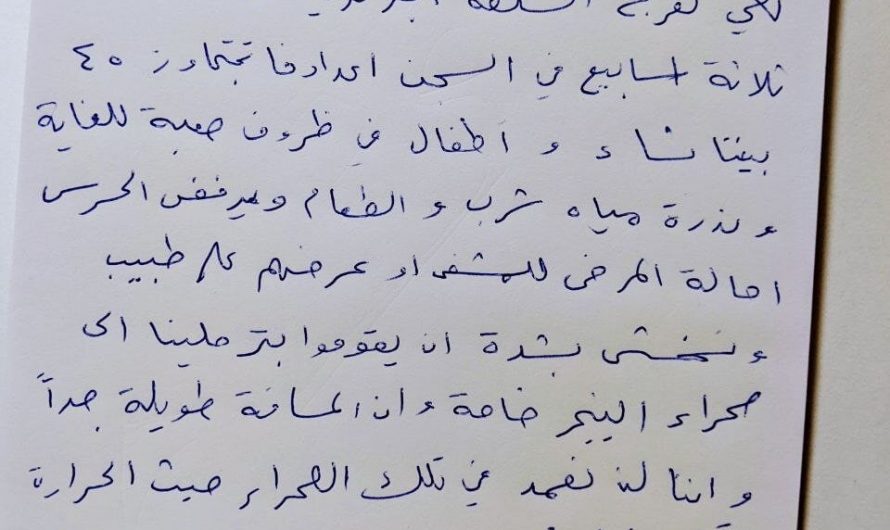 ثلاثة اسابيع في السجن اعدادنا تتجاوز ٤٠
بيننا نساء و اطفال في ظروف صعبة للغاية
و ندرة مياه شرب و الطعام ويرفض الحرس
احالة المرضى للمشفى او عرضهم على طبيب
و نخشى بشدة ان يقوموا بترحلينا الى
صحراء النيجر خاصة وان المسافة طويلة جداً
و اننا لن نصمد في تلك الصحراء حيث الحرارة